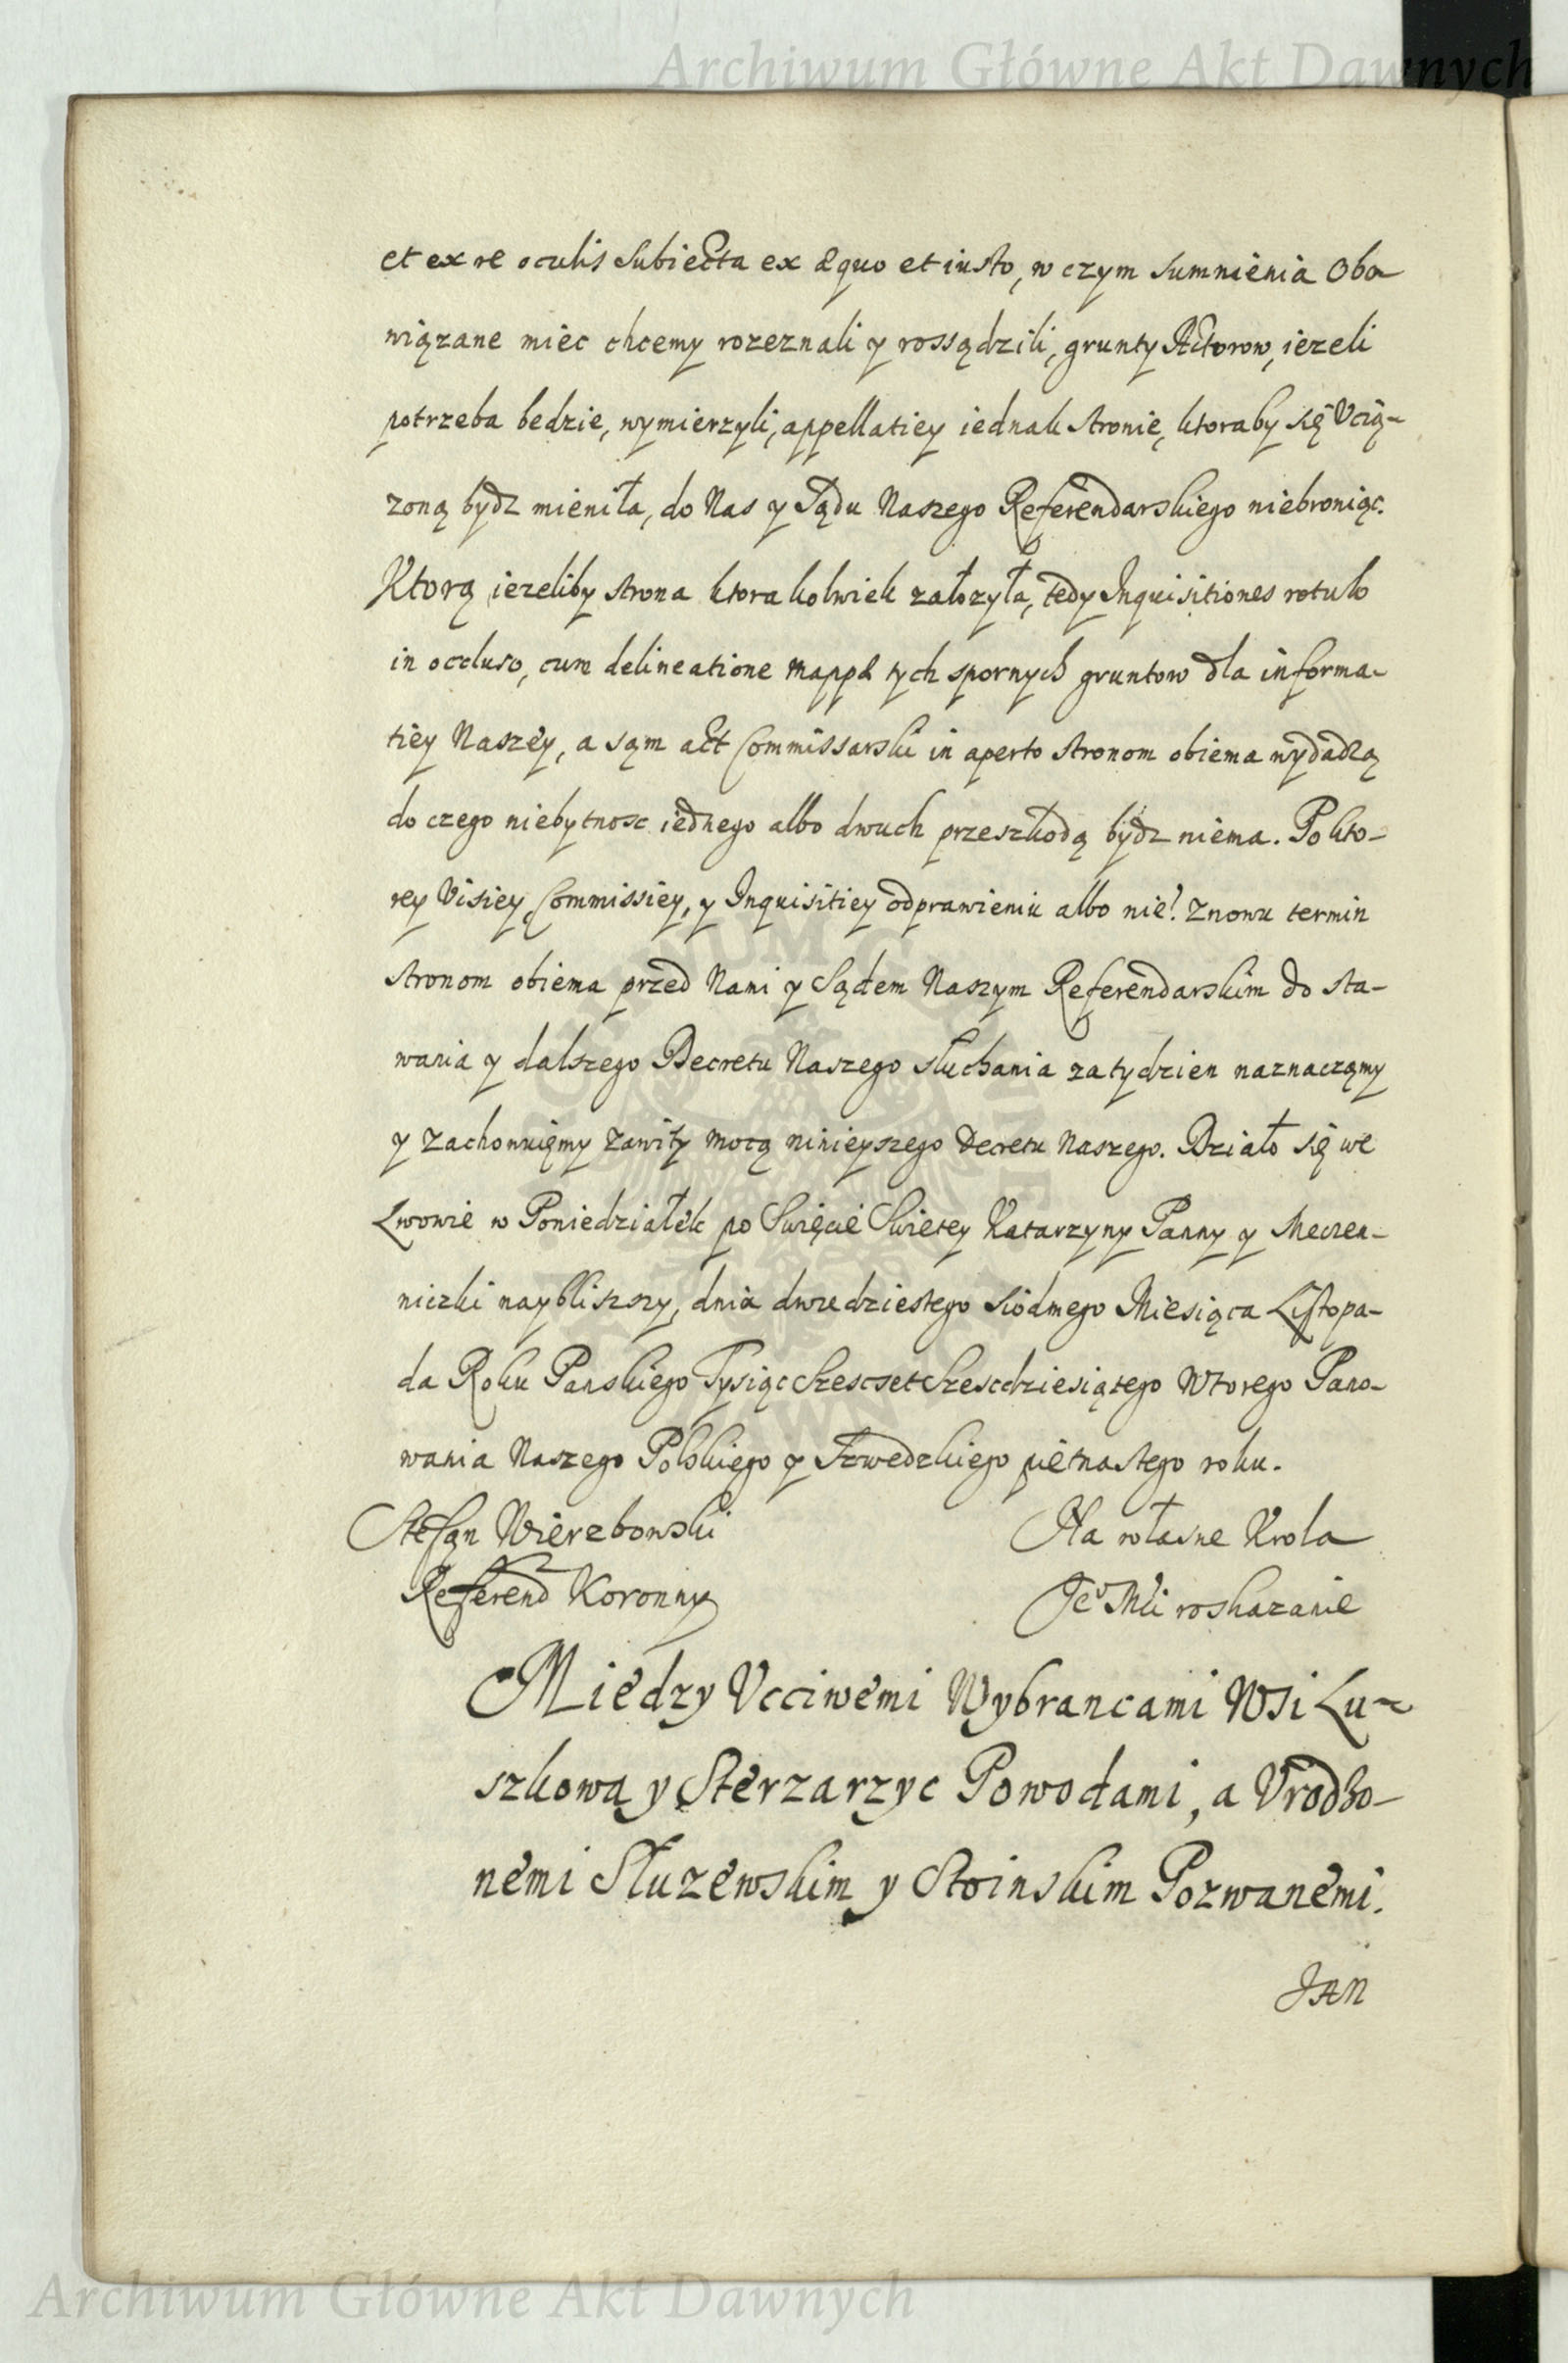 Archiwum Główne Akt Dawnych
et ex re oculis subiecta ex æquo et iusto, w czym sumnienia obo
wiązane miec chcemy rozeznali y rossądzili, grunty Actorow, iezeli
potrzeba bedzie, wymierzyli, appellatiey iednak stronie, ktoraby się Vcią-
zoną bydz mieniła, do Nas y Sądu Naszego Referendarskiego niebroniąc.
Ktorą iezeliby strona ktora kolwiek załozyła, tedy Inquisitiones rotulo
in occluso, cum delineatione mappæ tych spornych gruntow dla informa-
tiey Naszey, a sąm act Commissarski in aperto stronom obiema wydadzą
do czego niebytnosc iednego albo dwuch przeszkodą bydz niema. Po kto-
rey Visiey, Commissiey, y Inquisitiey odprawieniu albo nie! Znowu termin
stronom obiema przed Nami y Sądem Naszym Referendarskim do sta-
wania y dalszego Decretu Naszego słuchania za tydzien naznaczamy
y zachowuięmy zawity mocą ninieyszego Decretu Naszego. Działo się we
Lwowie w Poniedziałek po Swięcie Swietey Katarzyny Panny y Meczen-
niczki naybliszszy, dnia dwudziestego siodmego Miesiąca Listopa-
da Roku Panskiego Tysiąc Szescset Szescdziesiątego Wtorego Pano-
wania Naszego Polskiego y Szwedzkiego pietnastego roku.
Stefąn Wierzbowski Na własne Krola
Referend Koronny Jeo Mci roskazanie
Miedzy Vcciwemi Wybrancami Wsi Lu-
szkowa y Sterzarzyc Powodami, a Vrodzo-
nemi Słuzewskim y Stoinskim Pozwanemi.
JAN
Archiwum Główne Akt Dawnych